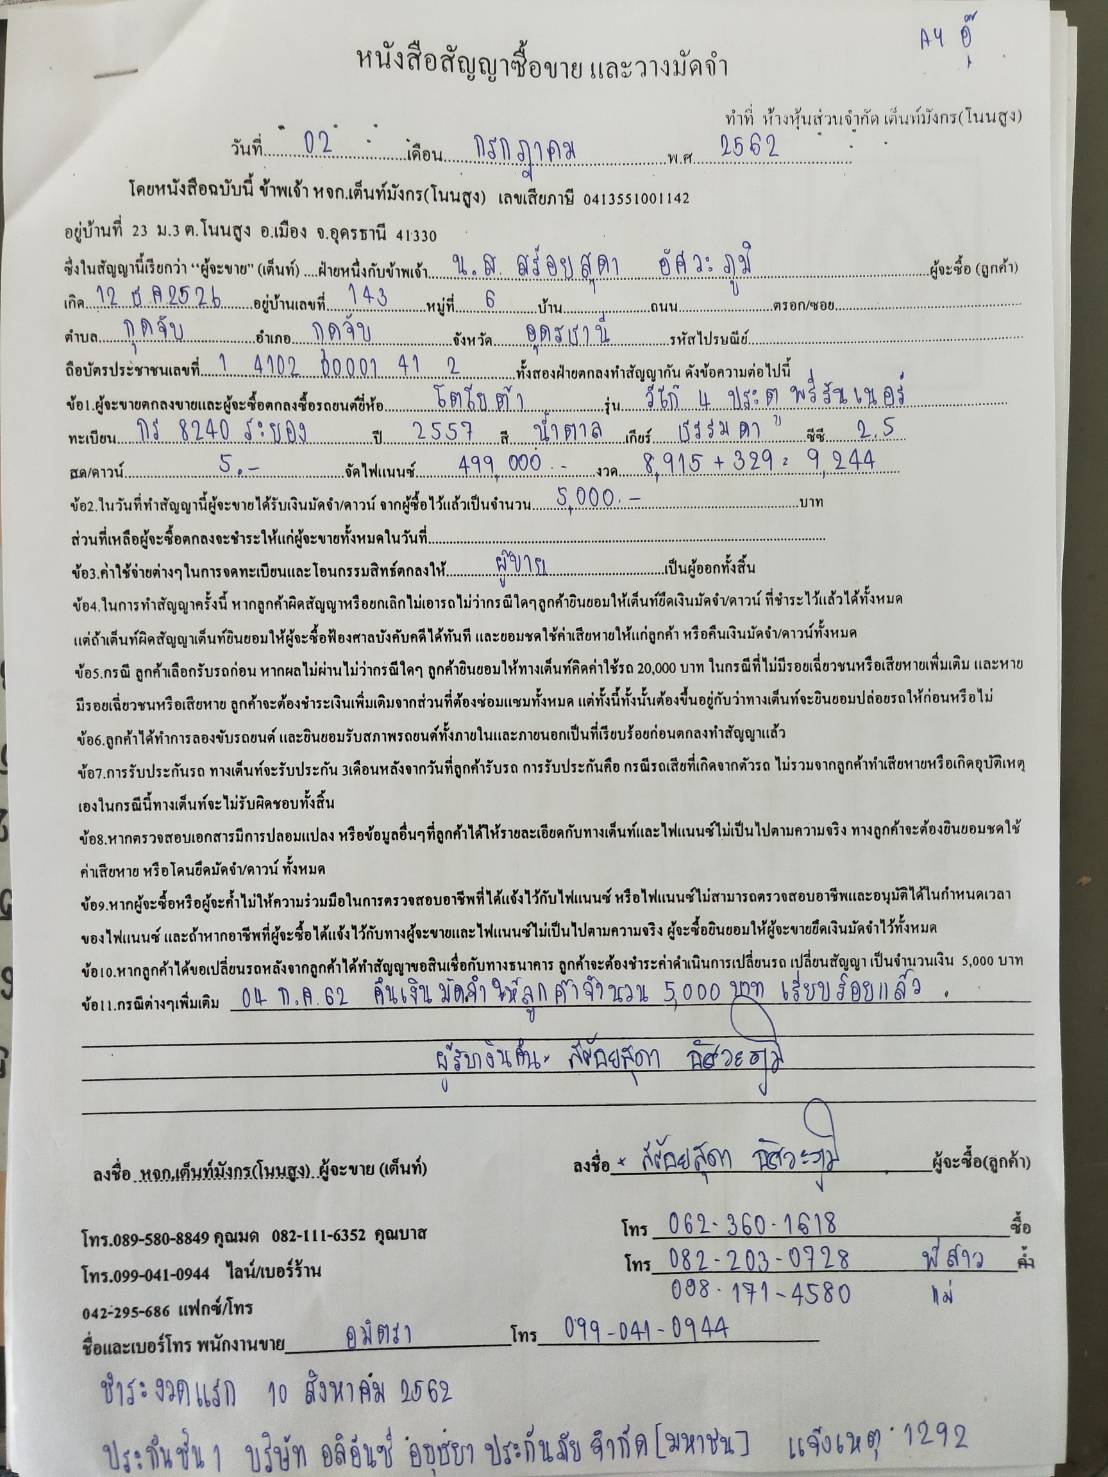 A4 อุ๊
หนังสือสัญญาซื้อขาย และวางมัดจำ
ทำที่ ห้างหุ้นส่วนจำกัด เต็นท์มังกร(โนนสูง)
วันที่ 02 เดือน กรกฎาคม พ.ศ 2562
โดยหนังสือฉบับนี้ ข้าพเจ้า หจก.เต็นท์มังกร(โนนสูง) เลขเสียภาษี 0413551001142
อยู่บ้านที่ 23 ม.3 ต.โนนสูง อ.เมือง จ.อุดรธานี 41330
ซึ่งในสัญญานี้เรียกว่า "ผู้จะขาย" (เต็นท์) ....ฝ่ายหนึ่งกับข้าพเจ้า น.ส. สร้อยสุดา อัศวะภูมิ ผู้จะซื้อ (ลูกค้า)
เกิด 12 ธ.ค 2526 อยู่บ้านเลขที่ 143 หมู่ที่ 6 บ้าน ถนน ตรอก/ซอย
ตำบล กุดจับ อำเภอ กุดจับ จังหวัด อุดรธานี รหัสไปรษณีย์
ถือบัตรประชาชนเลขที่ 1 4102 00001 41 2 ทั้งสองฝ่ายตกลงทำสัญญากัน ดังข้อความต่อไปนี้
ข้อ1.ผู้จะขายตกลงขายและผู้จะซื้อตกลงซื้อรถยนต์ยี่ห้อ โตโยต้า รุ่น วีโก้ 4 ประตู พรีรันเนอร์
ทะเบียน กร 8240 ระยอง ปี 2557 สี น้ำตาล เกียร์ ธรรมดา ซีซี 2.5
สด/ดาวน์ 5.- จัดไฟแนนซ์ 499,000.- งวด 8,915 + 329 = 9,244
ข้อ2.ในวันที่ทำสัญญานี้ผู้จะขายได้รับเงินมัดจำ/ดาวน์ จากผู้ซื้อไว้แล้วเป็นจำนวน 5,000.- บาท
ส่วนที่เหลือผู้จะซื้อตกลงจะชำระให้แก่ผู้จะขายทั้งหมดในวันที่
ข้อ3.ค่าใช้จ่ายต่างๆในการจดทะเบียนและโอนกรรมสิทธ์ตกลงให้ ผู้ขาย เป็นผู้ออกทั้งสิ้น
ข้อ4.ในการทำสัญญาครั้งนี้ หากลูกค้าผิดสัญญาหรือยกเลิกไม่เอารถไม่ว่ากรณีใดๆลูกค้ายินยอมให้เต็นท์ยึดเงินมัดจำ/ดาวน์ ที่ชำระไว้แล้วได้ทั้งหมด
แต่ถ้าเต็นท์ผิดสัญญาเต็นท์ยินยอมให้ผู้จะซื้อฟ้องศาลบังคับคดีได้ทันที และยอมชดใช้ค่าเสียหายให้แก่ลูกค้า หรือคืนเงินมัดจำ/ดาวน์ทั้งหมด
ข้อ5.กรณี ลูกค้าเลือกรับรถก่อน หากผลไม่ผ่านไม่ว่ากรณีใดๆ ลูกค้ายินยอมให้ทางเต็นท์คิดค่าใช้รถ 20,000 บาท ในกรณีที่ไม่มีรอยเฉี่ยวชนหรือเสียหายเพิ่มเติม และหาย
มีรอยเฉี่ยวชนหรือเสียหาย ลูกค้าจะต้องชำระเงินเพิ่มเติมจากส่วนที่ต้องซ่อมแซมทั้งหมด แต่ทั้งนี้ทั้งนั้นต้องขึ้นอยู่กับว่าทางเต็นท์จะยินยอมปล่อยรถให้ก่อนหรือไม่
ข้อ6.ลูกค้าได้ทำการลองขับรถยนต์ และยินยอมรับสภาพรถยนต์ทั้งภายในและภายนอกเป็นที่เรียบร้อยก่อนตกลงทำสัญญาแล้ว
ข้อ7.การรับประกันรถ ทางเต็นท์จะรับประกัน 3เดือนหลังจากวันที่ลูกค้ารับรถ การรับประกันคือ กรณีรถเสียที่เกิดจากตัวรถ ไม่รวมจากลูกค้าทำเสียหายหรือเกิดอุบัติเหตุ
เองในกรณีนี้ทางเต็นท์จะไม่รับผิดชอบทั้งสิ้น
ข้อ8.หากตรวจสอบเอกสารมีการปลอมแปลง หรือข้อมูลอื่นๆที่ลูกค้าได้ให้รายละเอียดกับทางเต็นท์และไฟแนนซ์ไม่เป็นไปตามความจริง ทางลูกค้าจะต้องยินยอมชดใช้
ค่าเสียหาย หรือโดนยึดมัดจำ/ดาวน์ ทั้งหมด
ข้อ9.หากผู้จะซื้อหรือผู้จะค้ำไม่ให้ความร่วมมือในการตรวจสอบอาชีพที่ได้แจ้งไว้กับไฟแนนซ์ หรือไฟแนนซ์ไม่สามารถตรวจสอบอาชีพและอนุมัติได้ในกำหนดเวลา
ของไฟแนนซ์ และถ้าหากอาชีพที่ผู้จะซื้อได้แจ้งไว้กับทางผู้จะขายและไฟแนนซ์ไม่เป็นไปตามความจริง ผู้จะซื้อยินยอมให้ผู้จะขายยึดเงินมัดจำไว้ทั้งหมด
ข้อ10.หากลูกค้าได้ขอเปลี่ยนรถหลังจากลูกค้าได้ทำสัญญาขอสินเชื่อกับทางธนาคาร ลูกค้าจะต้องชำระค่าดำเนินการเปลี่ยนรถ เปลี่ยนสัญญา เป็นจำนวนเงิน 5,000 บาท
ข้อ11.กรณีต่างๆเพิ่มเติม 04 ก.ค.62 คืนเงินมัดจำให้ลูกค้าจำนวน 5,000 บาท เรียบร้อยแล้ว.
ผู้รับเงินคืน. สร้อยสุดา อัศวะภูมิ
ลงชื่อ หจก.เต็นท์มังกร(โนนสูง) ผู้จะขาย (เต็นท์) ลงชื่อ × สร้อยสุดา อัศวะภูมิ ผู้จะซื้อ(ลูกค้า)
โทร.089-580-8849 คุณมด 082-111-6352 คุณบาส โทร 062-360-1618 ซื้อ
โทร.099-041-0944 ไลน์/เบอร์ร้าน โทร 082-203-0728 พี่สาว ค้ำ
098-171-4580 แม่
042-295-686 แฟกซ์/โทร
ชื่อและเบอร์โทร พนักงานขาย อมิตรา โทร 099-041-0944
ชำระงวดแรก 10 สิงหาคม 2562
ประกันชั้น 1 บริษัท อลิอันซ์ อยุธยา ประกันภัย จำกัด [มหาชน] แจ้งเหตุ 1292